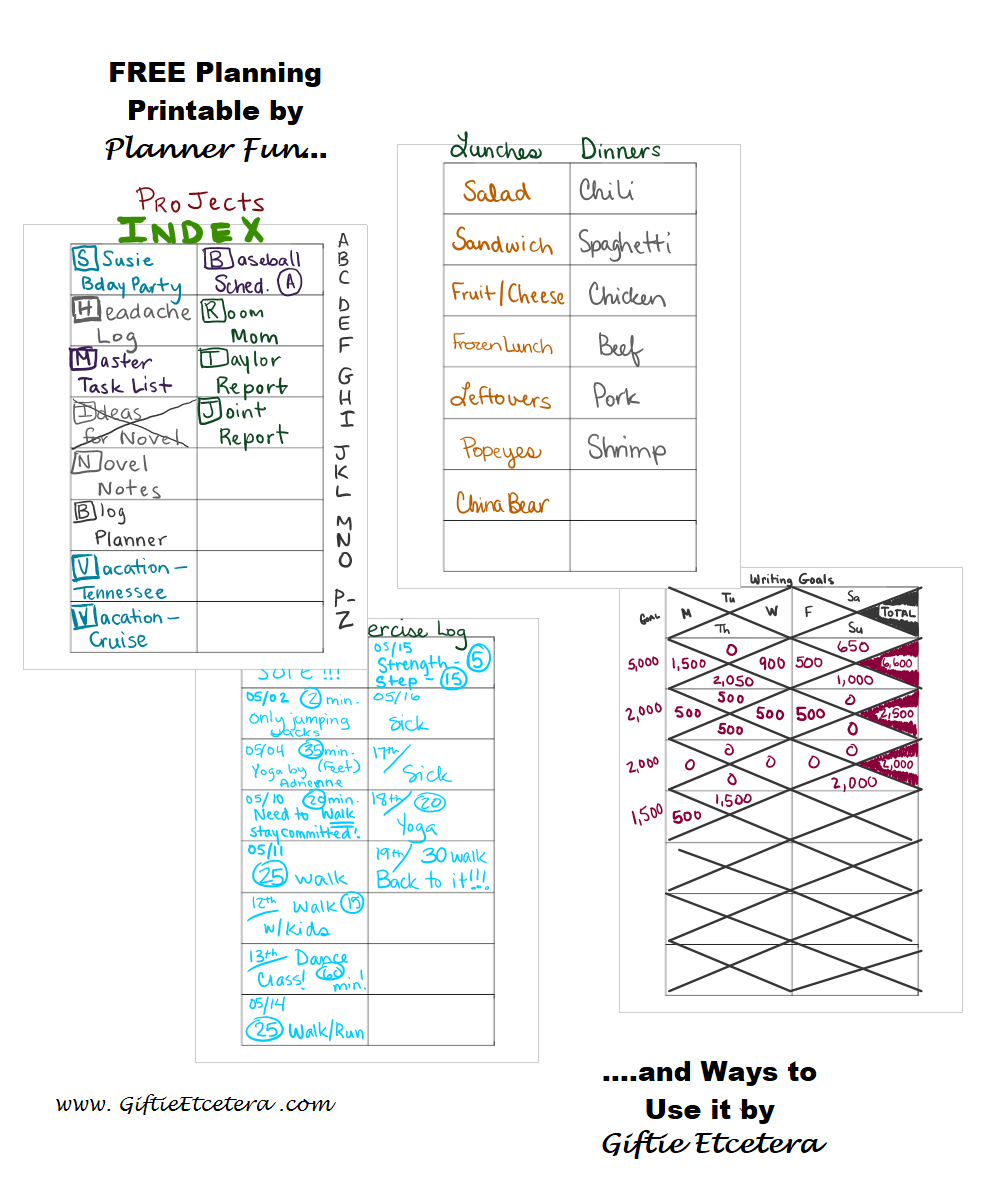 FREE Planning
Printable by
Planner Fun...
PRoJects
INDEX
Susie
Bday Party
Baseball
Sched. A
Headache
Log
Room
Mom
Master
Task List
Taylor
Report
Ideas
for Novel
Joint
Report
Novel
Notes
Blog
Planner
Vacation –
Tennessee
Vacation –
Cruise
A
B
C
D
E
F
G
H
I
J
K
L
M
N
O
P-
Z
Lunches Dinners
Salad Chili
Sandwich Spaghetti
Fruit/Cheese Chicken
Frozen Lunch Beef
Leftovers Pork
Popeyes Shrimp
China Bear
ercise Log
!!!
05/15
Strength - 5
Step - 15
05/02 2 min.
Only jumping
Jacks
05/16
Sick
05/04 35 min.
Yoga by (Feet)
Adrienne
17th/
Sick
05/10 20 min.
Need to Walk
Stay committed!
18th/ 20
Yoga
05/11
25 Walk
19th/ 30 walk
Back to it!!!
12th Walk 15
w/kids
13th Dance
Class! 60
min!
05/14
25 Walk/Run
Writing Goals
GOAL M Tu Th W F Sa Su TOTAL
5,000 1,500 0 2,050 900 500 650 1,000 6,600
2,000 500 500 500 500 500 0 0 2,500
2,000 0 0 0 0 0 0 2,000 2,000
1,500 500 1,500
www. GiftieEtcetera .com
....and Ways to
Use it by
Giftie Etcetera